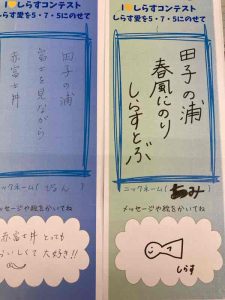 I しらすコンテスト
しらす愛を5・7・5にのせて
田子の浦
富士を見ながら
赤富士丼
ニックネーム(
メッセージや絵をかいてね
赤富士丼 とっても
おいしくて 大好き!!
I しらすコンテスト
しらす愛を5・7・5にのせて
田子の浦
春風にのり
しらすとぶ
ニックネーム( あみ )
メッセージや絵をかいてね
しらす